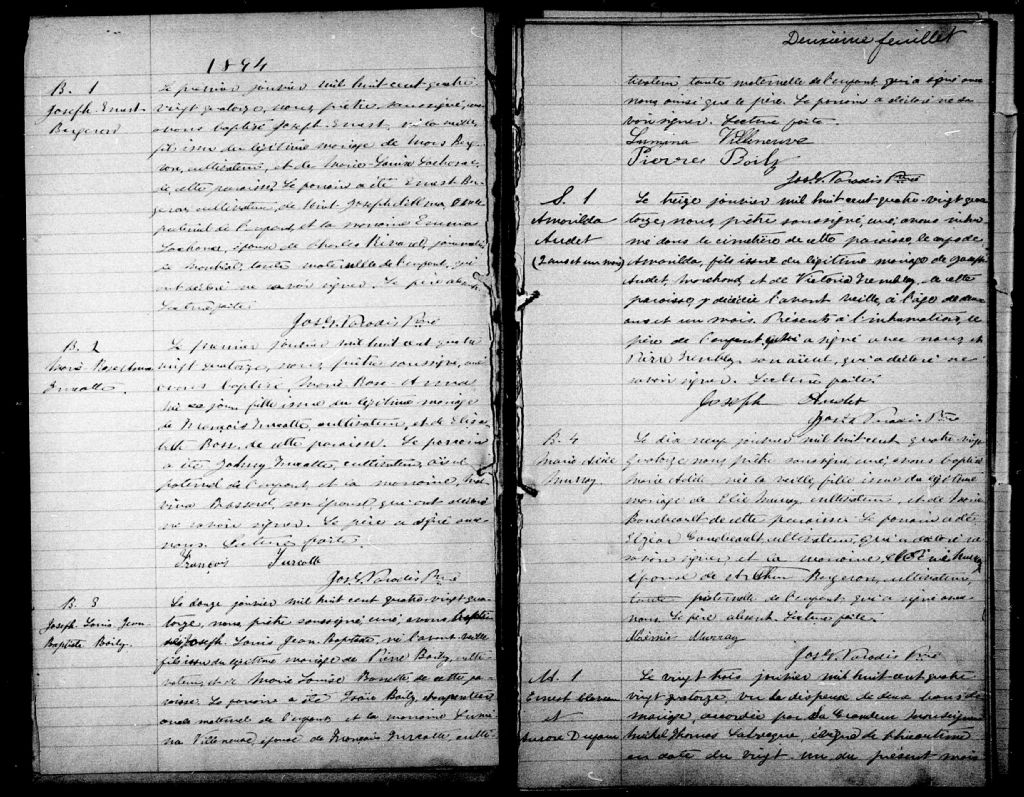 1894
B. 1
Joseph Ernest
Bergeron
Le premier janvier mil huit cent quatre
vingt quatorze, nous, prêtre soussigné, curé
avons baptisé Joseph Ernest, né la veille,
fils issu du légitime mariage de
cultivateur, et de Marie Louise Lachance
de cette paroisse. Le parrain a été Ernest
cultivateur, de Saint Joseph d'Alma, oncle
paternel de l'enfant, et la marraine Emma
Lachance, épouse de Charles Rivard, journalier
de Montréal, tante maternelle de l'enfant, qui
ont déclaré ne savoir signer. Le père absent.
Lecture faite.
Jos. G. Paradis Ptre
B. 2
Marie Rose Anna
Turcotte
Le premier janvier mil huit cent quatre
vingt quatorze, nous, prêtre soussigné, curé
avons baptisé, Marie Rose Anna
née ce jour, fille issue du légitime mariage
de François Turcotte, cultivateur, et de
Bosse, de cette paroisse. Le parrain
a été Johnny Turcotte, cultivateur, aïeul
paternel de l'enfant, et la marraine,
Brassard, son épouse, qui ont déclaré
ne savoir signer. Le père a signé avec
nous. Lecture faite.
François Turcotte
Jos. G. Paradis Ptre
B. 3
Joseph Louis Jean
Baptiste Boily
Le douze janvier mil huit cent quatre-vingt qua
torze, nous prêtre soussigné curé avons baptisé
Joseph Louis Jean Baptiste, né l'avant veille
fils issu du légitime mariage de Pierre Boily, culti
vateur, et de Marie Louise de cette pa
roisse. Le parrain a été Boily, charpentier
oncle maternel de l'enfant, et la marraine Lumi
na Villeneuve, épouse de François Turcotte, culti
Deuxième feuillet
tivateur, tante maternelle de l'enfant qui a signé avec
nous ainsi que le père. Le parrain a déclaré ne sa
voir signer. Lecture faite.
Lumina Villeneuve
Pierre Boily
Jos. G. Paradis Ptre
S. 1
Amarilda
Audet
(2 ans et un mois)
Le treize janvier mil huit cent quatre-vingt qua
torze, nous, prêtre soussigné, curé, avons inhu
mé dans le cimetière de cette paroisse, le corps de
Amarilda, fille issue du légitime mariage de Joseph
Audet, marchand, et de Victoria Tremblay, de cette
paroisse, y décédée l'avant veille, à l'âge de deux
ans et un mois. Présents à l'inhumation, le
père de l'enfant qui a signé avec nous et
Tremblay, son aïeul, qui a déclaré ne
savoir signer. Lecture faite.
Joseph Audet
Jos. G. Paradis Ptre
B. 4
Marie
Murray
Le dix neuf janvier mil huit cent quatre vingt
quatorze nous, prêtre soussigné, curé, avons baptisé
Marie née la veille, fille issue du légitime
mariage de Elie Murray, cultivateur, et de Marie
Boudreault de cette paroisse. Le parrain a été
Elzéar Boudreault, cultivateur, qui a déclaré ne
savoir signer et la marraine Murray
épouse de Bergeron, cultivateur,
tante paternelle de l'enfant, qui a signé avec
nous. Le père absent. Lecture faite.
Noémie Murray
Jos. G. Paradis Ptre
M. 1
Ernest
et
Aurore Dufour
Le vingt trois janvier mil huit cent quatre
vingt quatorze, vu la dispense de deux bans de
mariage, accordée par Sa Grandeur Monseigneur
Michel Thomas Labrecque, évêque de Chicoutimi
en date du vingt un du présent mois